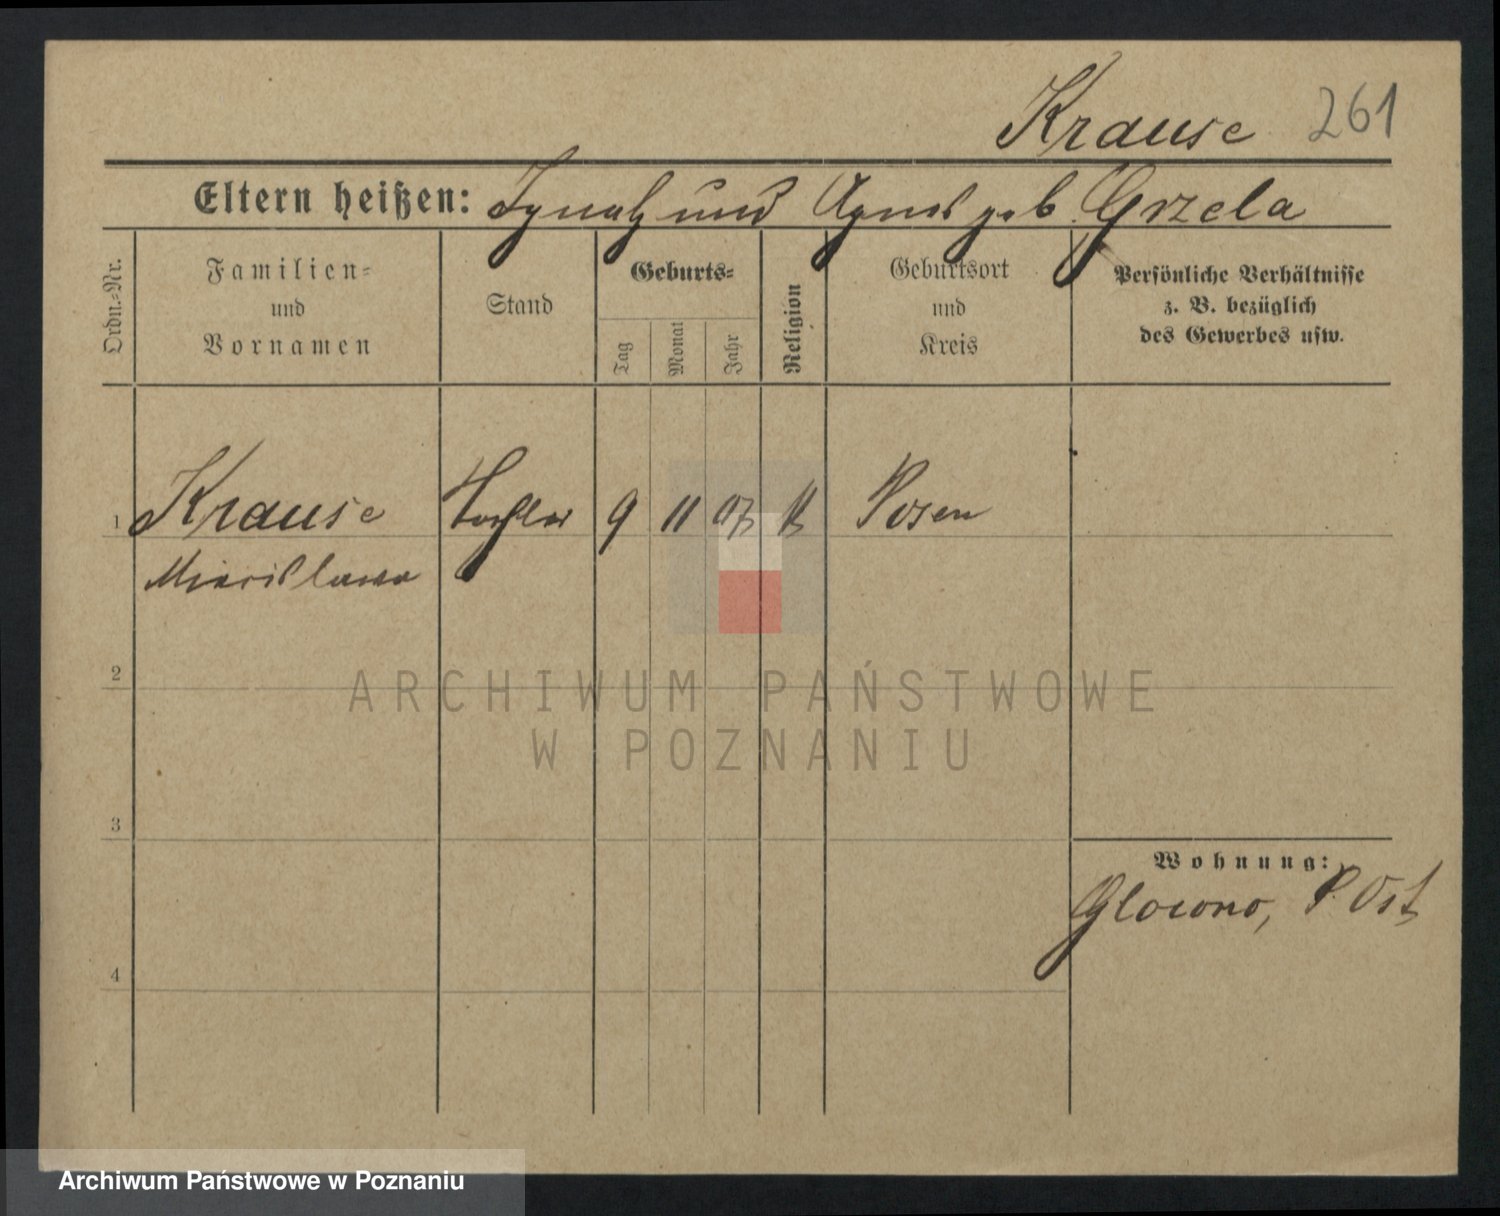 Krause 261
Eltern heißen: Ignatz und Agnes geb. Grzela
Ordn.-Nr.
Familien-
und
Vornamen
Stand
Geburts-
Tag
Monat
Jahr
Religion
Geburtsort
und
Kreis
Persönliche Verhältnisse
z. B. bezüglich
des Gewerbes usw.
1 Krause Tochter 9 11 07 k Posen
Miecislawa
2
ARCHIWUM PAŃSTWOWE
W POZNANIU
3
Wohnung:
Glowno, P. Ost
4
Archiwum Państwowe w Poznaniu